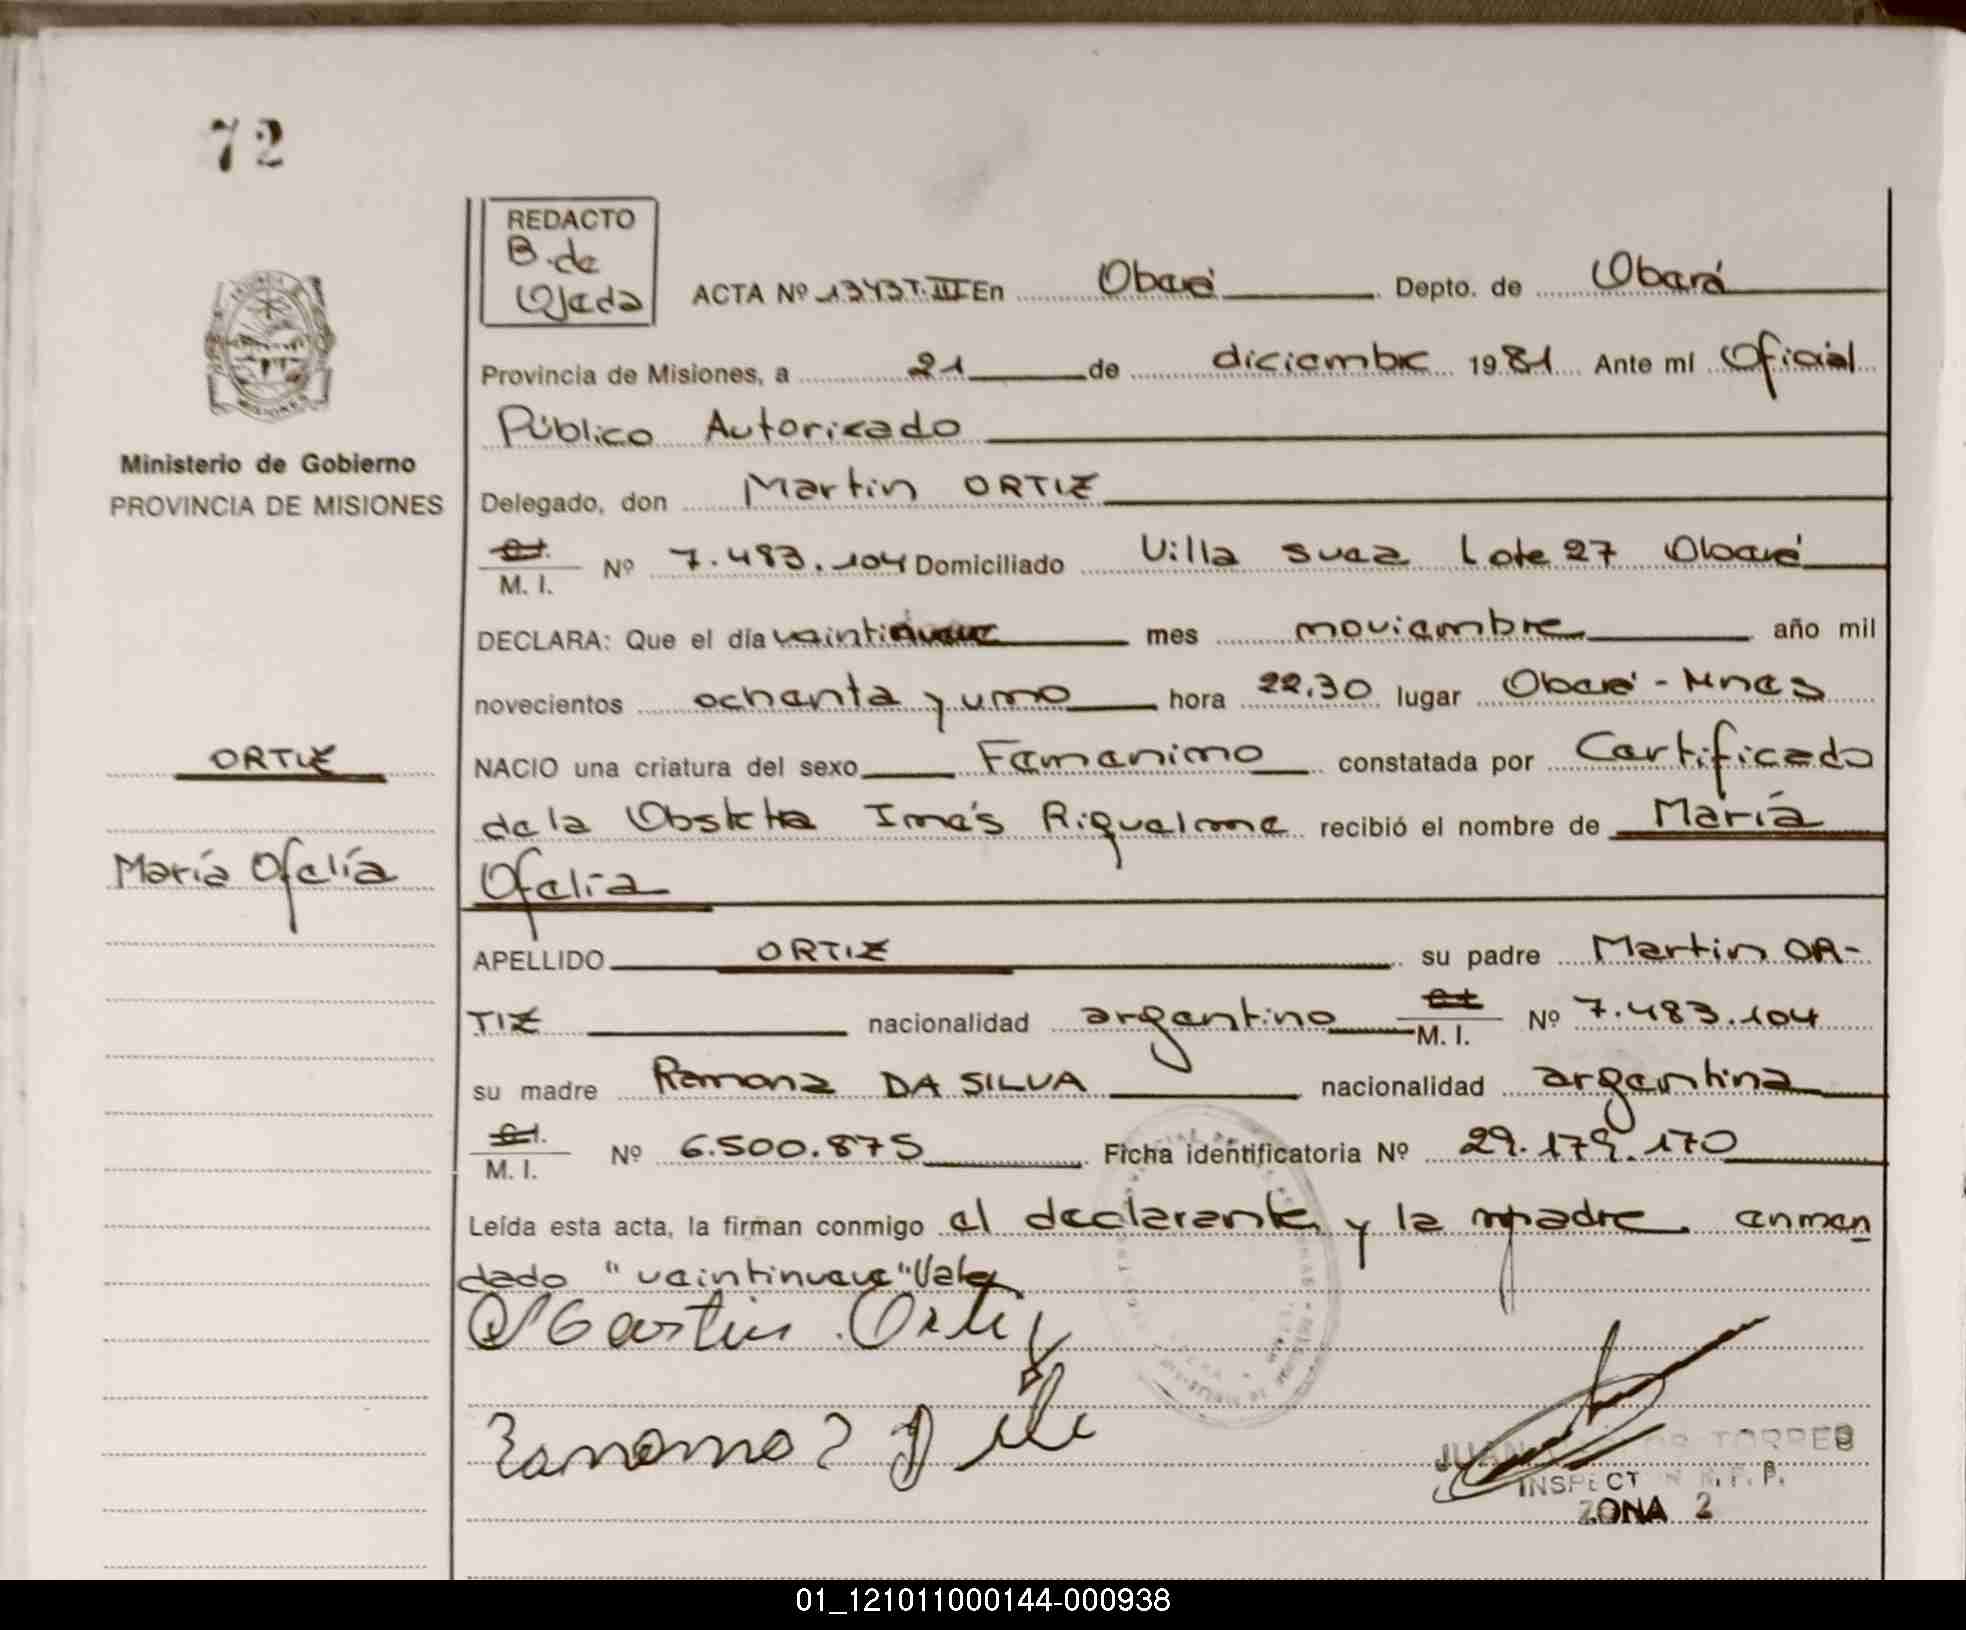 72
REDACTO
B. de
Ojeda
ACTA Nº 1343 T. III En Oberá Depto. de Oberá
Provincia de Misiones, a 21 de diciembre 1981 Ante mí Oficial
Público Autorizado
Ministerio de Gobierno
PROVINCIA DE MISIONES
Delegado, don Martin ORTIZ
C.I.
M. I. Nº 7.483.104 Domiciliado Villa suea Lote 27 Oberá
DECLARA: Que el día veintinueve mes noviembre año mil
novecientos ochenta y uno hora 22,30 lugar Oberá - Mnes
ORTIZ
NACIO una criatura del sexo Femenino constatada por Certificado
de la Obstetra Inés Riquelme recibió el nombre de María
María Ofelía
Ofelia
APELLIDO ORTIZ su padre Martin OR-
TIZ nacionalidad argentino C.I. M. I. Nº 7.483.104
su madre Ramona DA SILVA nacionalidad argentina
C.I.
M. I. Nº 6.500.875 Ficha identificatoria Nº 29.179.170
Leída esta acta, la firman conmigo el declarante y la madre. enmen
dado "veintinueve" Vale
Martin Ortiz
Ramona
JUAN TORRES
INSPECT R. P. P.
ZONA 2
MISIONES
01_121011000144-000938